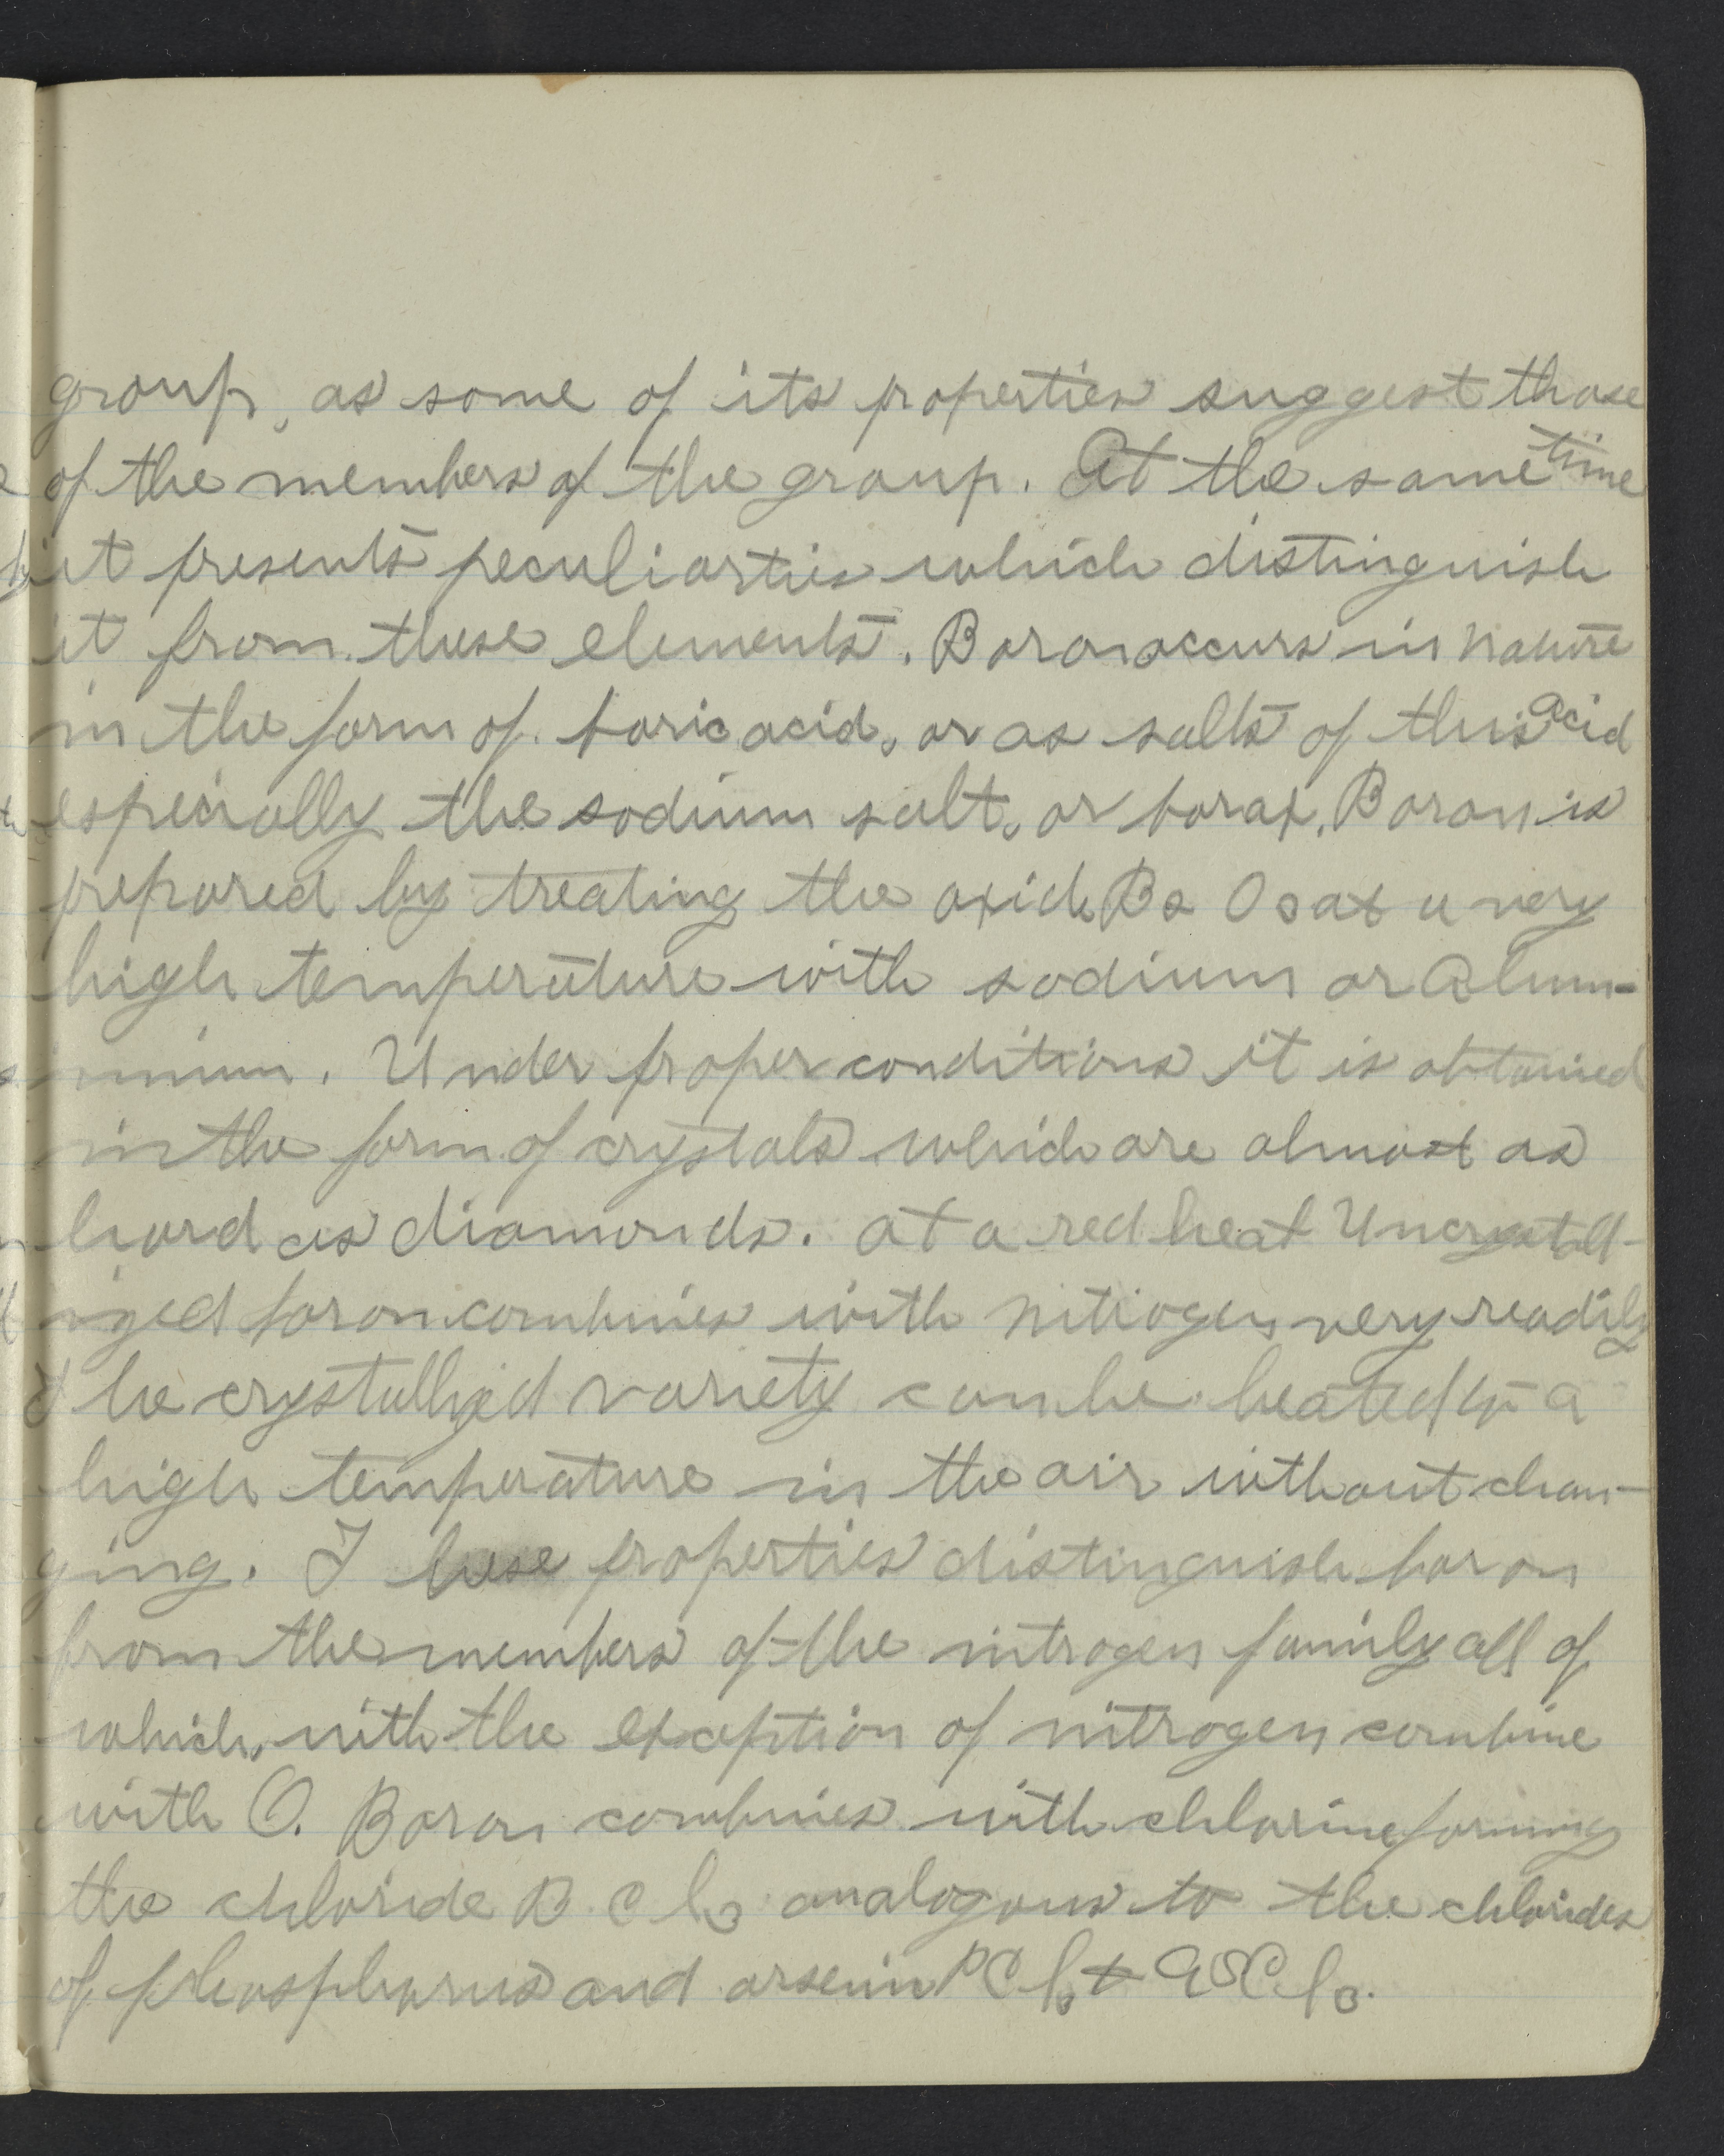 group, as some of its properties suggest those
of the members of the group. At the same time
it presents peculiarties which distinguish
it from these elements. Boron occurs in nature
in the form of boric acid, or as salts of this acid
especially the sodium salt, or borax. Boron is
prepared by treating the oxide B2 O3 at a very
high temperature with sodium or Alum-
inium. Under proper conditions it is obtained
in the form of crystals which are almost as
hard as diamonds. At a red heat Uncrystall-
ized boron combines with nitrogen very readily
The crystallized variety can be heated to a
high temperature in the air without chan-
ging. These properties distinguish boron
from the members of the nitrogen family all of
which, with the exception of nitrogen combine
with O. Boron combines with chlorine forming
the chloride B. Cl3 analogous to the chlorides
of phosphorus and arsenic PCl3 + AsCl3.